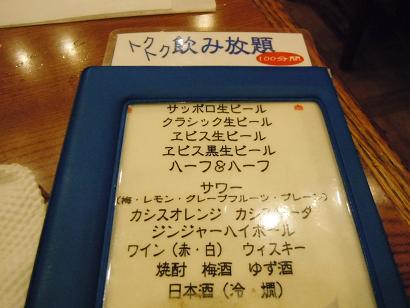 トクトク飲み放題
100分間
サッポロ生ビール
クラシック生ビール
ヱビス生ビール
ヱビス黒生ビール
ハーフ&ハーフ
サワー
(梅・レモン・グレープフルーツ・プレーン)
カシスオレンジ カシスソーダ
ジンジャーハイボール
ワイン(赤・白) ウィスキー
焼酎 梅酒 ゆず酒
日本酒(冷・燗)